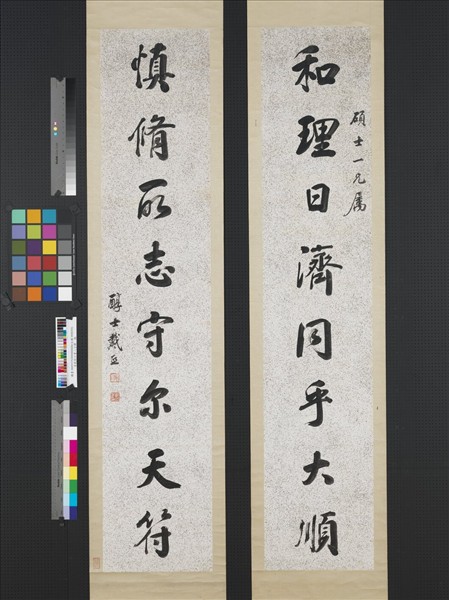 和理日濟同乎大順
碩士一兄屬
慎脩所志守尔天符
醇士戴熙